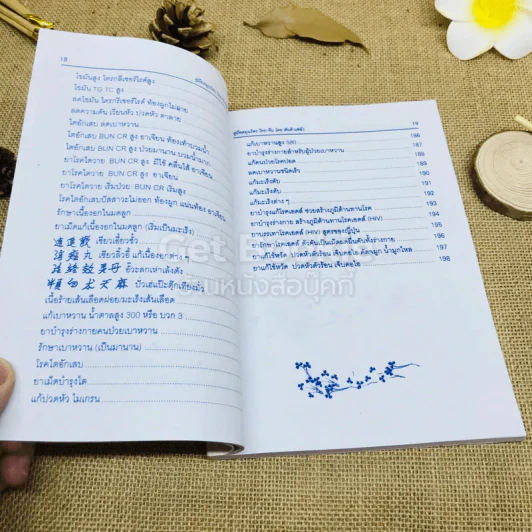 18
ไขมันสูง ไตรกลีเซอร์ไรด์สูง
ไขมัน TG TC สูง
ลดไขมัน ไตรกลีเซอร์ไรด์ ท้องผูกไม่ถ่าย
ลดความดัน เวียนหัว ปวดหัว ตาลาย
ไตอักเสบ ลดเบาหวาน
ไตอักเสบ BUN CR สูง อาเจียน ท้องเท้าบวมน้ำ
ยาโรคไต BUN CR สูง ป่วยมานาน บวมน้ำมาก
ยาโรคไต BUN CR สูง มีไข้ คลื่นไส้ อาเจียน
ยาโรคไตวาย BUN CR สูง อาเจียน
ยาโรคไตวาย เริ่มป่วย BUN CR เริ่มสูง
โรคไตอักเสบปัสสาวะไม่ออก ท้องผูก แน่นท้อง อาเจียน
รักษาเนื้องอกในมดลูก
ยาเม็ดแก้เนื้องอกในมดลูก (เริ่มเป็นมะเร็ง)
逍遥散 เซียวเอี้ยวซั่ว
消瘤丸 เซียวลิ้วอี๊ แก้เนื้องอกต่างๆ
เนื้อร้ายเส้นเลือดฝอย/มะเร็งเส้นเลือด
แก้เบาหวาน น้ำตาลสูง 300 หรือ บวก 3
ยาบำรุงร่างกายคนป่วยเบาหวาน
รักษาเบาหวาน (เป็นมานาน)
โรคไตอักเสบ
ยาเม็ดบำรุงไต
แก้ปวดหัว ไมเกรน
19
แก้เบาหวานสูง 580 186
ยาบำรุงร่างกายสำหรับผู้ป่วยเบาหวาน 187
แก้คนป่วยโรคปอด 188
ลดเบาหวานชนิดเร็ว 189
แก้มะเร็งตับ 190
แก้มะเร็งตับ 191
แก้มะเร็งต่าง ๆ 192
ยาบำรุงแก้โรคเอดส์ ช่วยสร้างภูมิต้านทานโรค 193
ยาบำรุงร่างกาย สร้างภูมิต้านทานโรคเอดส์ (HIV) 194
ยาบรรเทาโรคเอดส์ (HIV) สูตรของญี่ปุ่น 195
ยารักษาโรคเอดส์ ตัวคันเป็นเม็ดผดผื่นคันทั้งร่างกาย 196
ยาแก้ไข้หวัด ปวดหัวตัวร้อน เจ็บคอไอ คัดจมูก น้ำมูกไหล 197
ยาแก้ไข้หวัด ปวดหัวตัวร้อน เจ็บคอไอ 198
บ้านหนังสือบุ๊คกี้